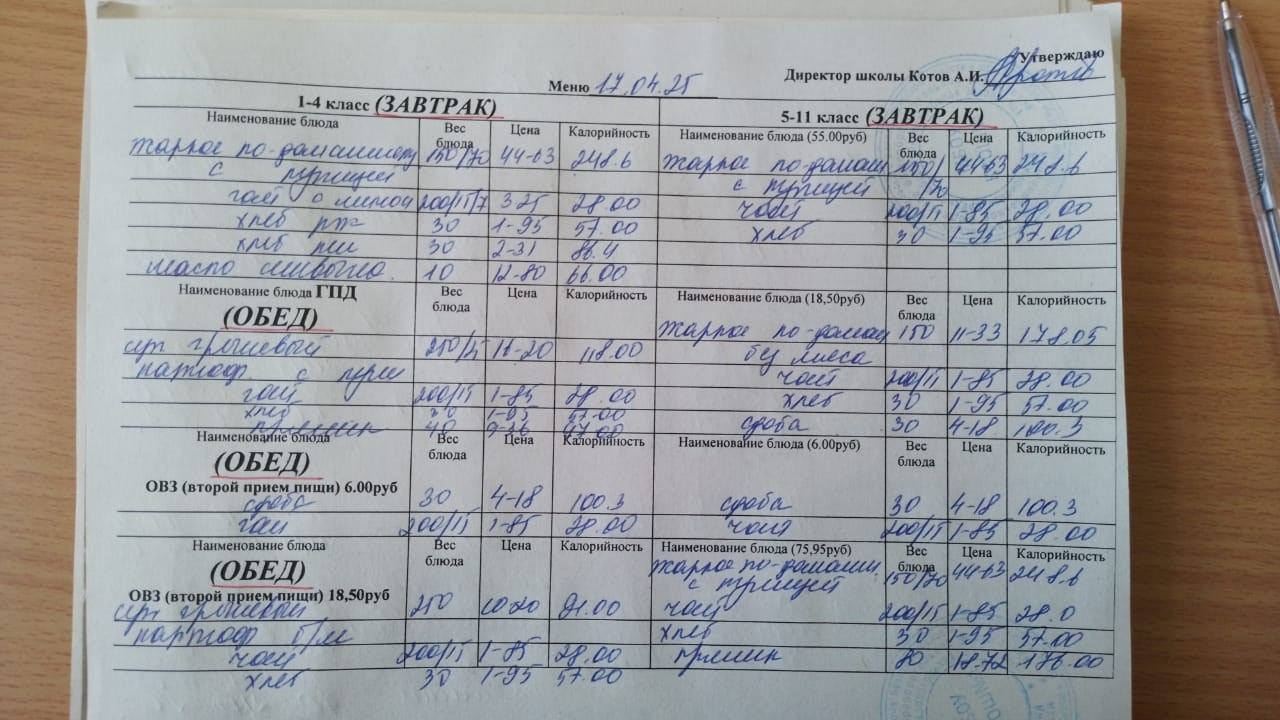 Утверждаю
Директор школы Котов А.И.
Меню 17.04.25
1-4 класс (ЗАВТРАК)
Наименование блюда Вес блюда Цена Калорийность
жаркое по-домашнему 150/70 44-63 248.6
с курицей
чай с лимон 200/15/7 3-25 28.00
хлеб рж 30 1-95 57.00
хлеб пш 30 2-31 86.4
масло сливочно 10 12-80 66.00
5-11 класс (ЗАВТРАК)
Наименование блюда (55.00руб) Вес блюда Цена Калорийность
жаркое по-домаш 150/ 44-63 248.6
с курицей /70
чай 200/15 1-85 28.00
хлеб 30 1-95 57.00
Наименование блюда ГПД Вес блюда Цена Калорийность
(ОБЕД)
суп гороховый 250/25 16-20 118.00
картоф с кури
чай 200/15 1-85 28.00
хлеб 30 1-95 57.00
пряник 40 9-36
Наименование блюда (18,50руб) Вес блюда Цена Калорийность
жаркое по-домаш 150 11-33 178.05
без мяса
чай 200/15 1-85 28.00
хлеб 30 1-95 57.00
сдоба 30 4-18 100.3
Наименование блюда Вес блюда Цена Калорийность
(ОБЕД)
ОВЗ (второй прием пищи) 6.00руб
сдоба 30 4-18 100.3
чай 200/15 1-85 28.00
Наименование блюда (6.00руб) Вес блюда Цена Калорийность
сдоба 30 4-18 100.3
чай 200/15 1-85 28.00
Наименование блюда Вес блюда Цена Калорийность
(ОБЕД)
ОВЗ (второй прием пищи) 18,50руб
суп гороховый 250 10-20 91.00
картоф б/м
чай 200/15 1-85 28.00
хлеб 30 1-95 57.00
Наименование блюда (75,95руб) Вес блюда Цена Калорийность
жаркое по-домашн 150/70 44-63 248.6
с курицей
чай 200/15 1-85 28.0
хлеб 30 1-95 57.00
пряник 80 18-72 176.00